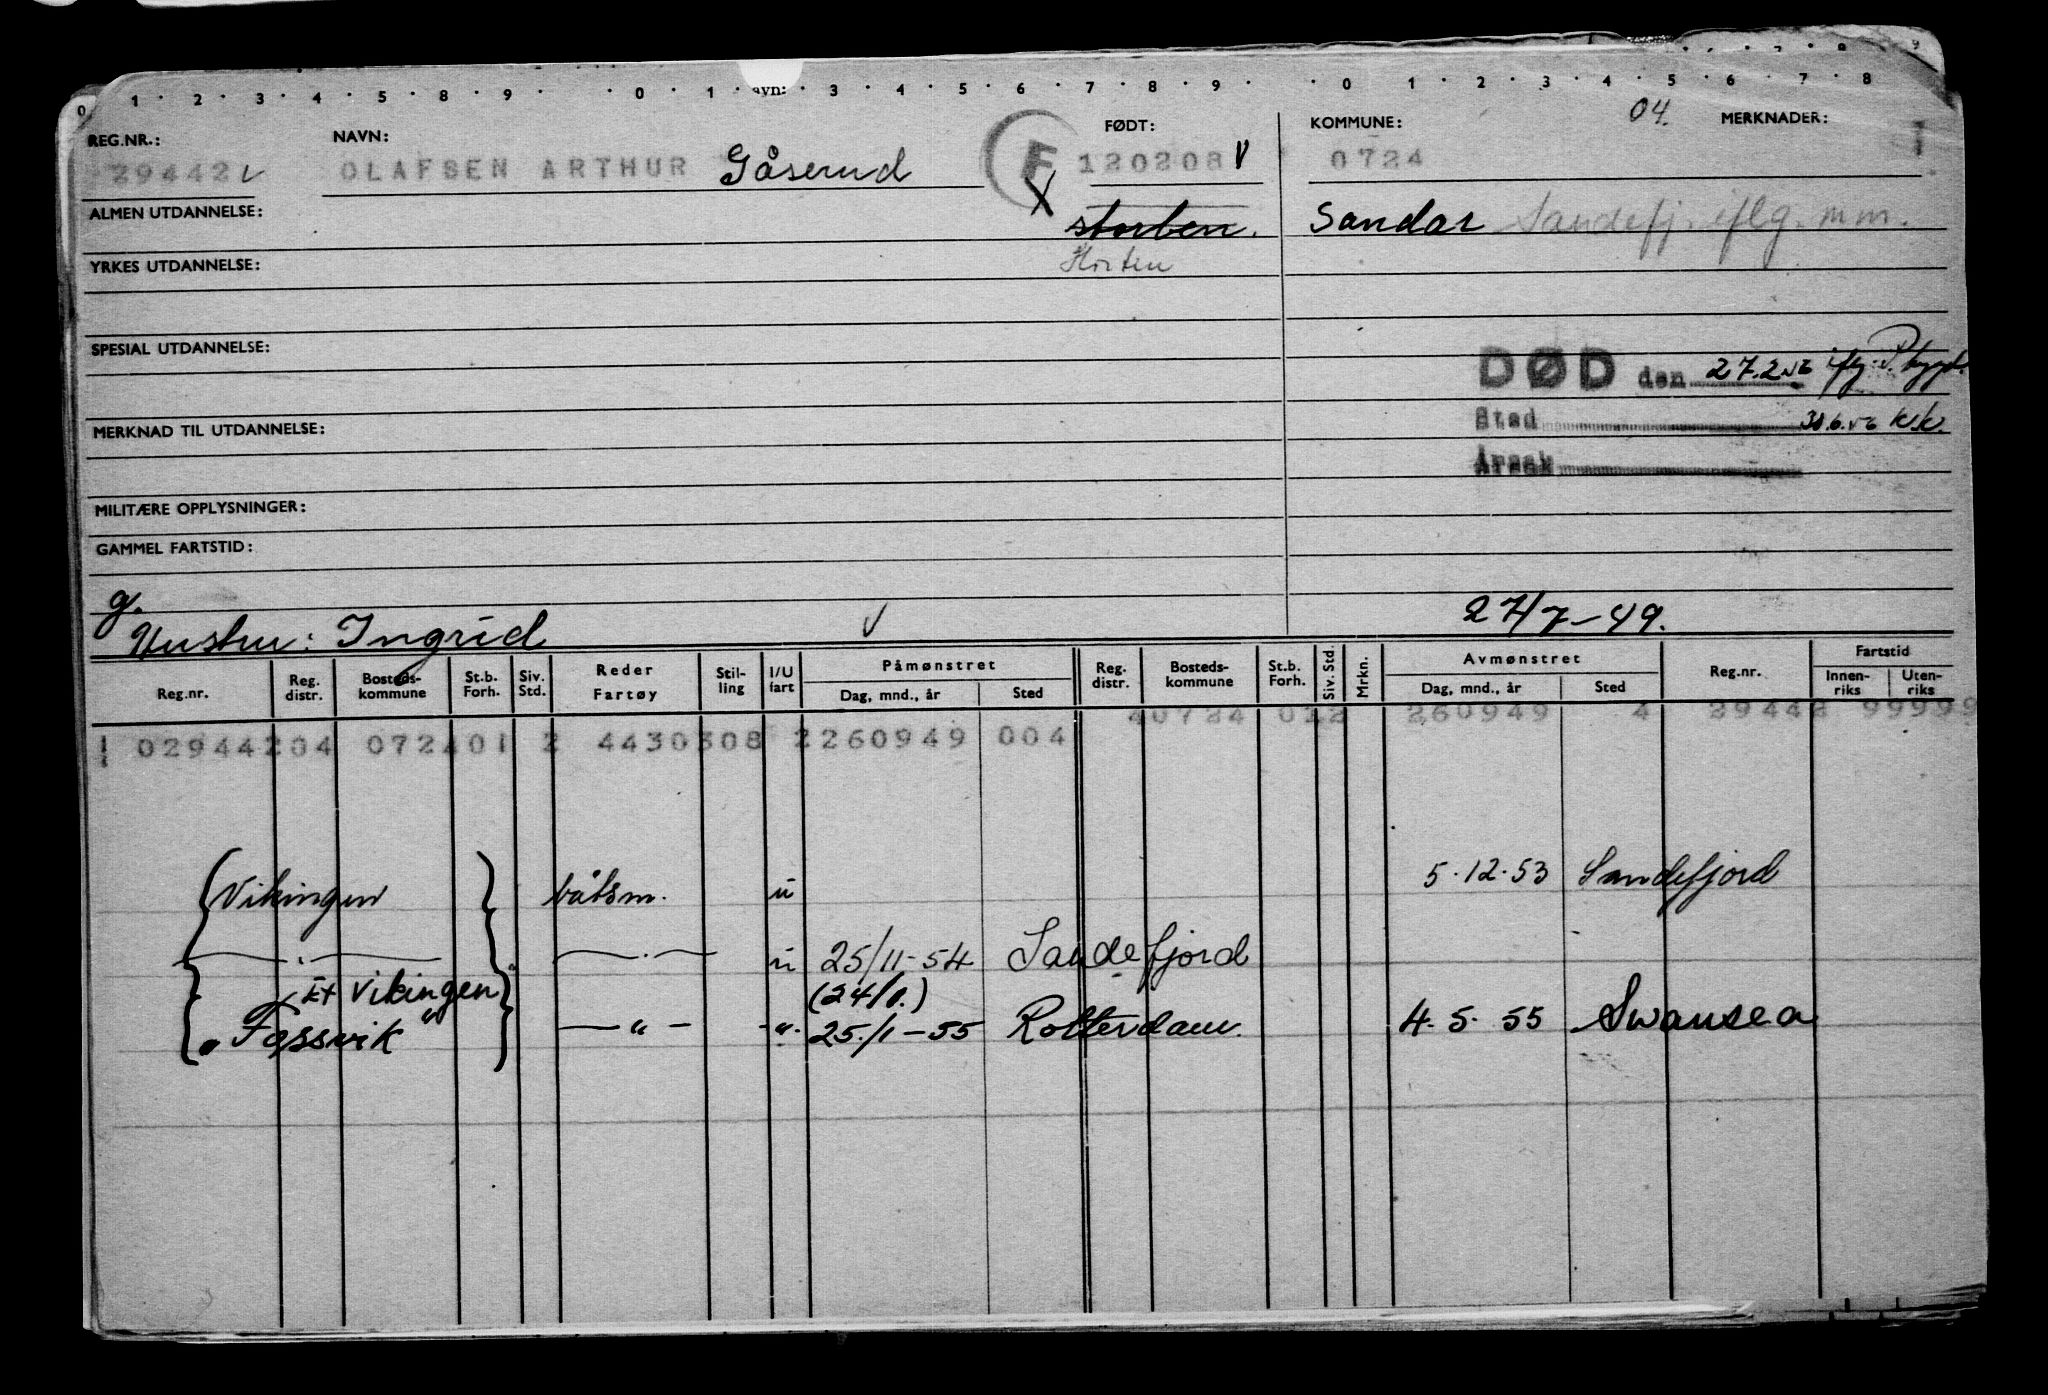 0 1 2 3 4 5 8 9 0 1 avn: 3 4 5 6 7 8 9 0 1 2 3 4 5 6 7 8
REG.NR.: NAVN: FØDT: KOMMUNE: 04. MERKNADER:
29442 OLAFSEN ARTHUR Gåserud F 120208 0724
ALMEN UTDANNELSE: Sandar Sandefj. iflg. m m.
YRKES UTDANNELSE: Horten
SPESIAL UTDANNELSE:
DØD den 27.2.56 iflg. P. trygd.
MERKNAD TIL UTDANNELSE: Sted 30.6.56 K.K.
Årsak
MILITÆRE OPPLYSNINGER:
GAMMEL FARTSTID:
g.
Hustru: Ingrid 27/7-49.
Reg.nr. Reg. distr. Bosteds-kommune St.b. Forh. Siv. Std. Reder Fartøy Stil-ling I/U fart Påmønstret Dag, mnd., år Sted Reg. distr. Bosteds-kommune St.b. Forh. Siv. Std. Mrkn. Avmønstret Dag, mnd., år Sted Reg.nr. Fartstid Innen-riks Uten-riks
40724 012 260949 4 29442 99999
02944204 072401 2 4430308 2260949 004
Vikingen båtsm. u 5.12.53 Sandefjord
— " — — " — u 25/11-54 Sandefjord
Ex Vikingen (24/1.)
"Fossvik" — " — -"- 25./1-55 Rotterdam. 4. 5. 55 Swansea